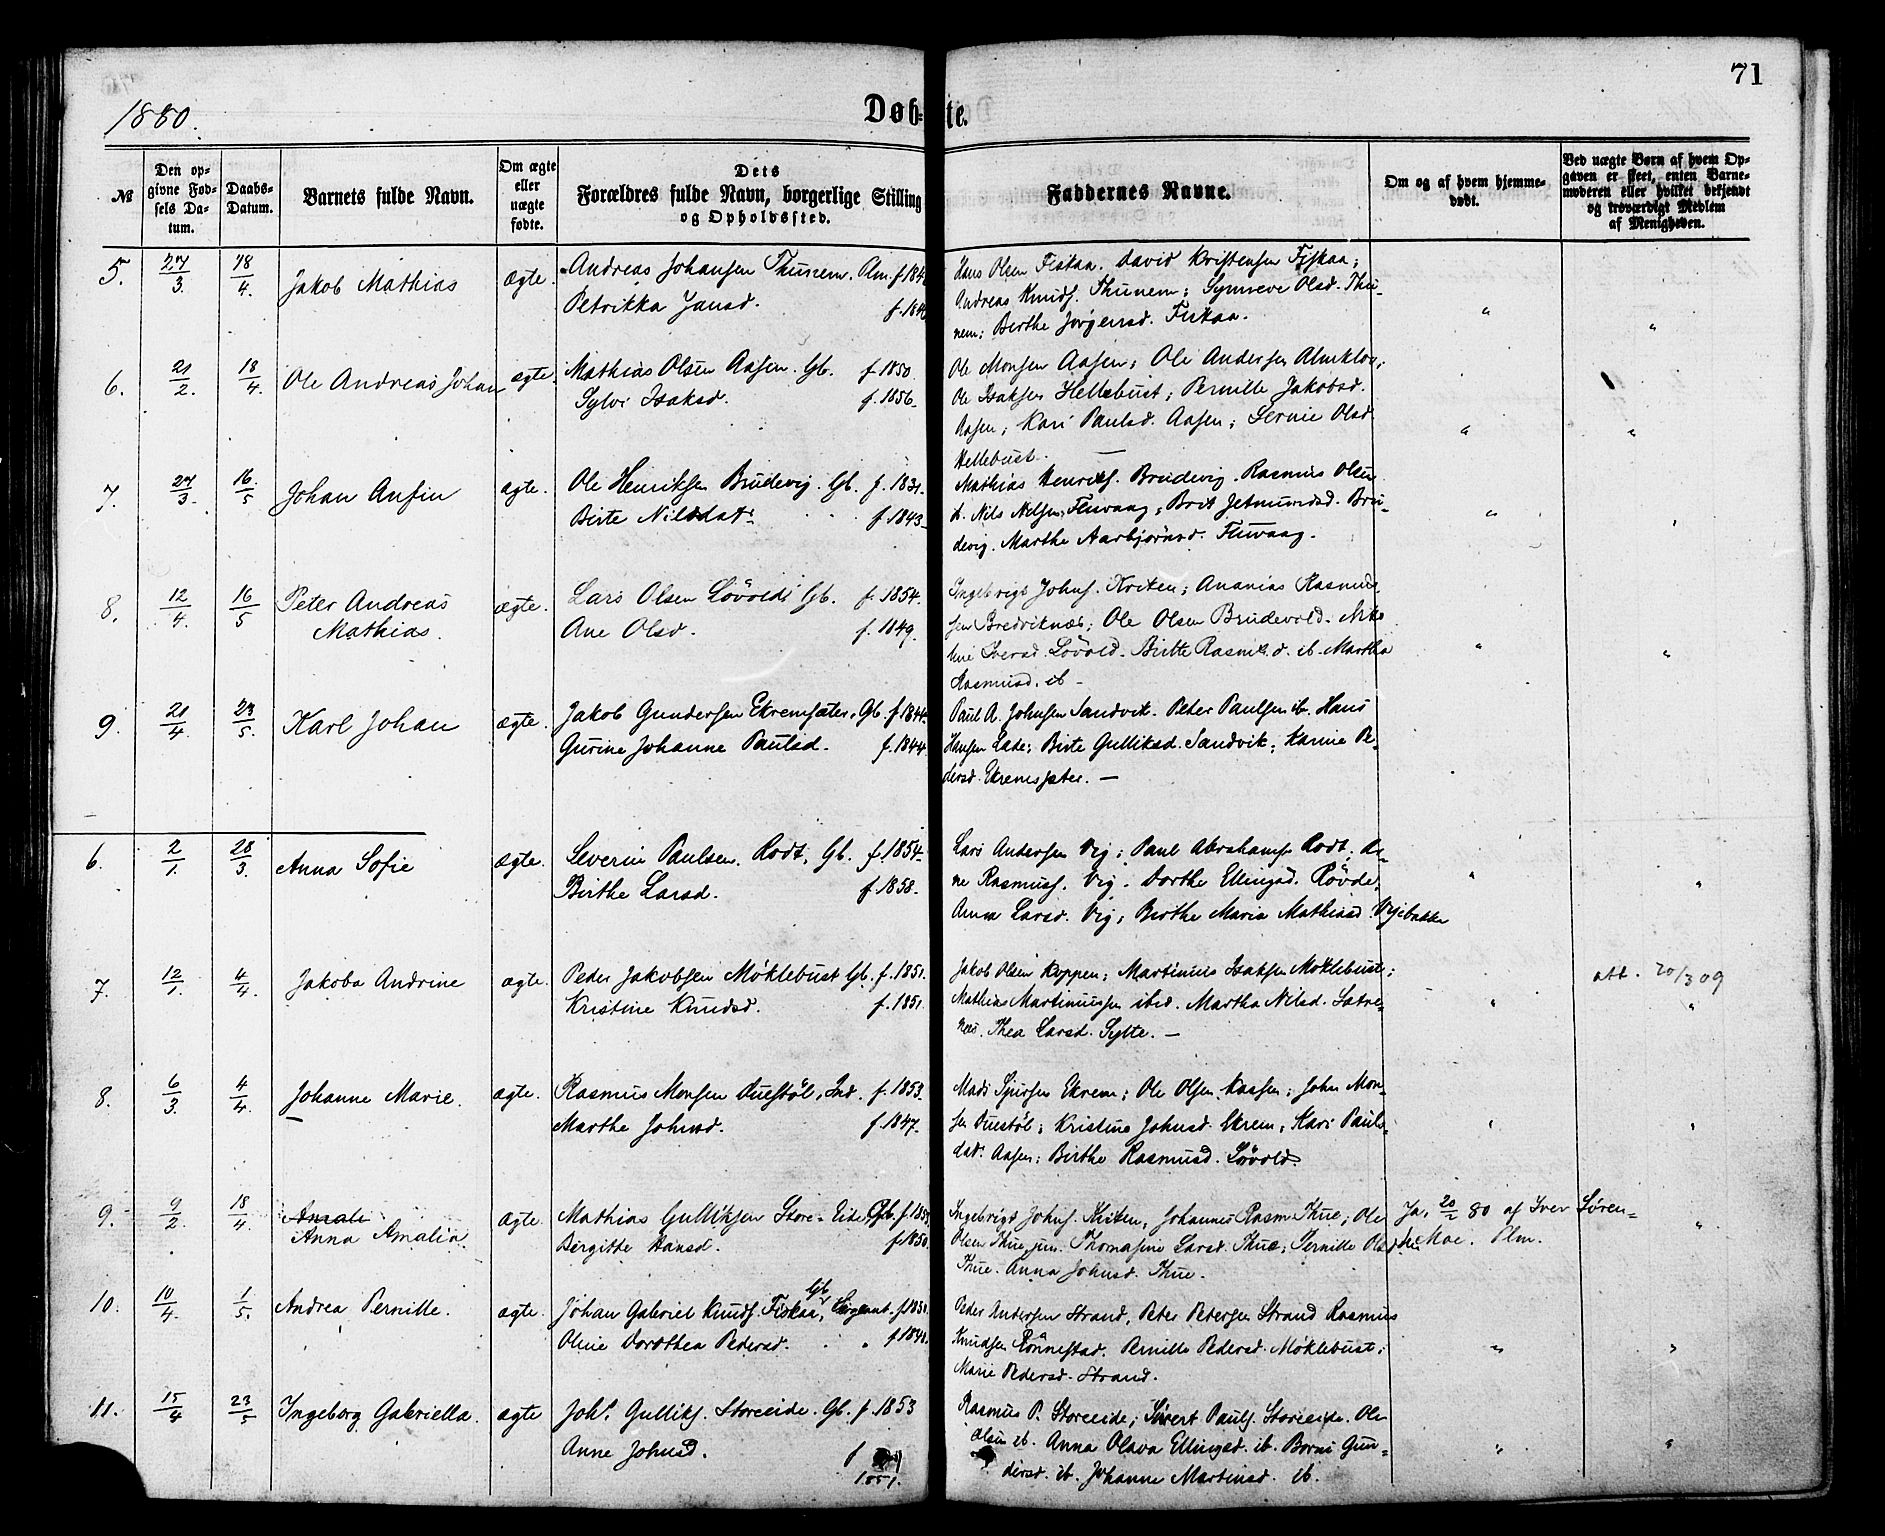 71
1880.
Døbte.
№
Den opgivne Fødsels Datum.
Daabs-Datum.
Barnets fulde Navn.
Om ægte eller uægte fødte.
Dets Forældres fulde Navn, borgerlige Stilling og Opholdssted.
Faddernes Navne.
Om og af hvem hjemmedøbt.
Ved uægte Børn af hvem Opgaven er skeet, enten Barnemoderen eller hvilket bekjendt og troværdigt Medlem af Menigheden.
5. 27/3. 18/4. Jakob Mathias ægte. Andreas Johansen Thunem. Plm.
Petrikka Jansd.
Hans Olsen Fiskaa. David Kristensen Fiskaa;
Andreas Knuds. Thunem; Synneve Olsd. Thu-
nem; Berthe Jørgensd. Fiskaa.
6. 21/2. 18/4. Ole Andreas Johan ægte. Mathias Olsen Aasen. Gb. f. 1850
Sylvi Isaksd. f. 1856.
Ole Monsen Aasen; Ole Andersen Almklov;
Ole Isaksen Hellebust; Pernille Jakobsd.
Aasen; Kari Paulsd. Aasen; Olsd.
Hellebust. —
7. 27/3. 16/5 Johan Anfin ægte. Ole Henriksen Brudevig. Gb. f. 1831.
Birte Nilsdat. f. 1843.
Mathias Henriks. Brudevig. Rasmus Olsen
ib. Nils Nilsen Fluvaag; Brit Jetmundsd. Bru-
devig. Marthe Aasbjørnsd. Fluvaag.
8. 12/4. 16/5 Peter Andreas ægte. Lars Olsen Løvold Gb. f. 1854.
Mathias. Ane Olsd. f. 1849.
Ingebrigt Johns. Ananias Rasmus-
sen Bredviknæs; Ole Olsen Brudevold. Niko-
line Iversd. Løvold. Birte Rasm.d. ib. Martha
Rasmusd. ib —
9. 21/4. 23/5. Karl Johan ægte. Jakob Gundersen Ekremsæter, Gb. f. 1844.
Gurine Johanne Paulsd. f. 1844.
Paul A. Johnsen Sandvik. Peter Paulsen ib. Hans
Hansen Lade; Birte Gulliksd. Sandvik; Karine Pe-
dersd. Ekremsæter. —
6. 2/1. 28/3. Anna Sofie ægte. Severin Paulsen Rodt, Gb. f. 1854.
Birthe Larsd. f. 1858.
Lars Andersen Vig; Paul Abrahams Rodt; Ar-
ne Rasmuss. Vig. Dorthe Ellingsd. Røvde;
Anna Larsd. Vig; Berthe Maria Mathiasd.
7. 12/1. 4/4. Jakoba Andrine ægte. Peder Jakobsen Møklebust Gb. f. 1851.
Kristine Knudsd. f. 1851.
Jakob Olsen Koppen; Martinus Isaksen Møklebust;
Mathias Martinussen ibid. Martha Nilsd. Sætre-
næs. Thea Larsd. Sylte. —
att. 20/3 09
8. 6/3. 4/4. Johanne Marie. ægte. Rasmus Monsen Duestøl, Ind. f. 1853.
Marthe Johnsd. f. 1847.
Mads Sjursen Ekrem; Ole Olsen Kaasen; John Mon-
sen Duestøl; Kristine Johnsd. Ekrem, Kari Pauls-
dat. Aasen; Birthe Rasmusd. Løvold.
9. 9/2. 18/4. Amali Anna Amalia ægte. Mathias Gulliksen Store-Eide, Gb.
Birgitte Hansd. f. 1850.
Ingebrigt Johns. Johannes Rasm. Thue; Ole
Olsen Thue jun. Thomasine Larsd. Thue; Pernille Olsd.
Thue. Anna Johnsd. Thue.
Ja, 20/2 80 af Iver Søren-
sen Moe. Plm.
10. 10/4. 1/5. Andrea Pernille. ægte. Johan Gabriel Knuds. Fiskaa, Gb. Sergeant.
Oline Dorothea Pedersd.
Peder Andersen Strand, Peter Petersen Strand Rasmus
Knudsen Rønnestad. Pernille Pedersd. Møklebust;
Marie Pedersd. Strand.
11. 15/4 23/5 Ingeborg Gabriella. ægte Johs. Gulliks. Storeeide. Gb. f. 1853
Anne Johnsd. f 1851.
Rasmus P. Storeeide; Sivert Pauls. Storeeide. Ole
Olsen ib. Anna Olava Ellingsd. ib. Gun-
dersd. ib. Johanne Martinsd. ib.